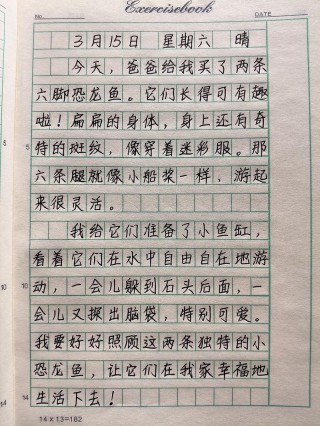 Exercisebook
No.
DATE
3月15日 星期六 晴
今天，爸爸给我买了两条
六脚恐龙鱼。它们长得可有趣
啦！扁扁的身体，身上还有奇
5
特的斑纹，像穿着迷彩服。那
5
六条腿就像小船桨一样，游起
来很灵活。
我给它们准备了小鱼缸，
看着它们在水中自由自在地游
10
动，一会儿躲到石头后面，一
10
会儿又探出脑袋，特别可爱。
我要好好照顾这两条独特的小
恐龙鱼，让它们在我家幸福地
14
生活下去！
14
14 x 13=182